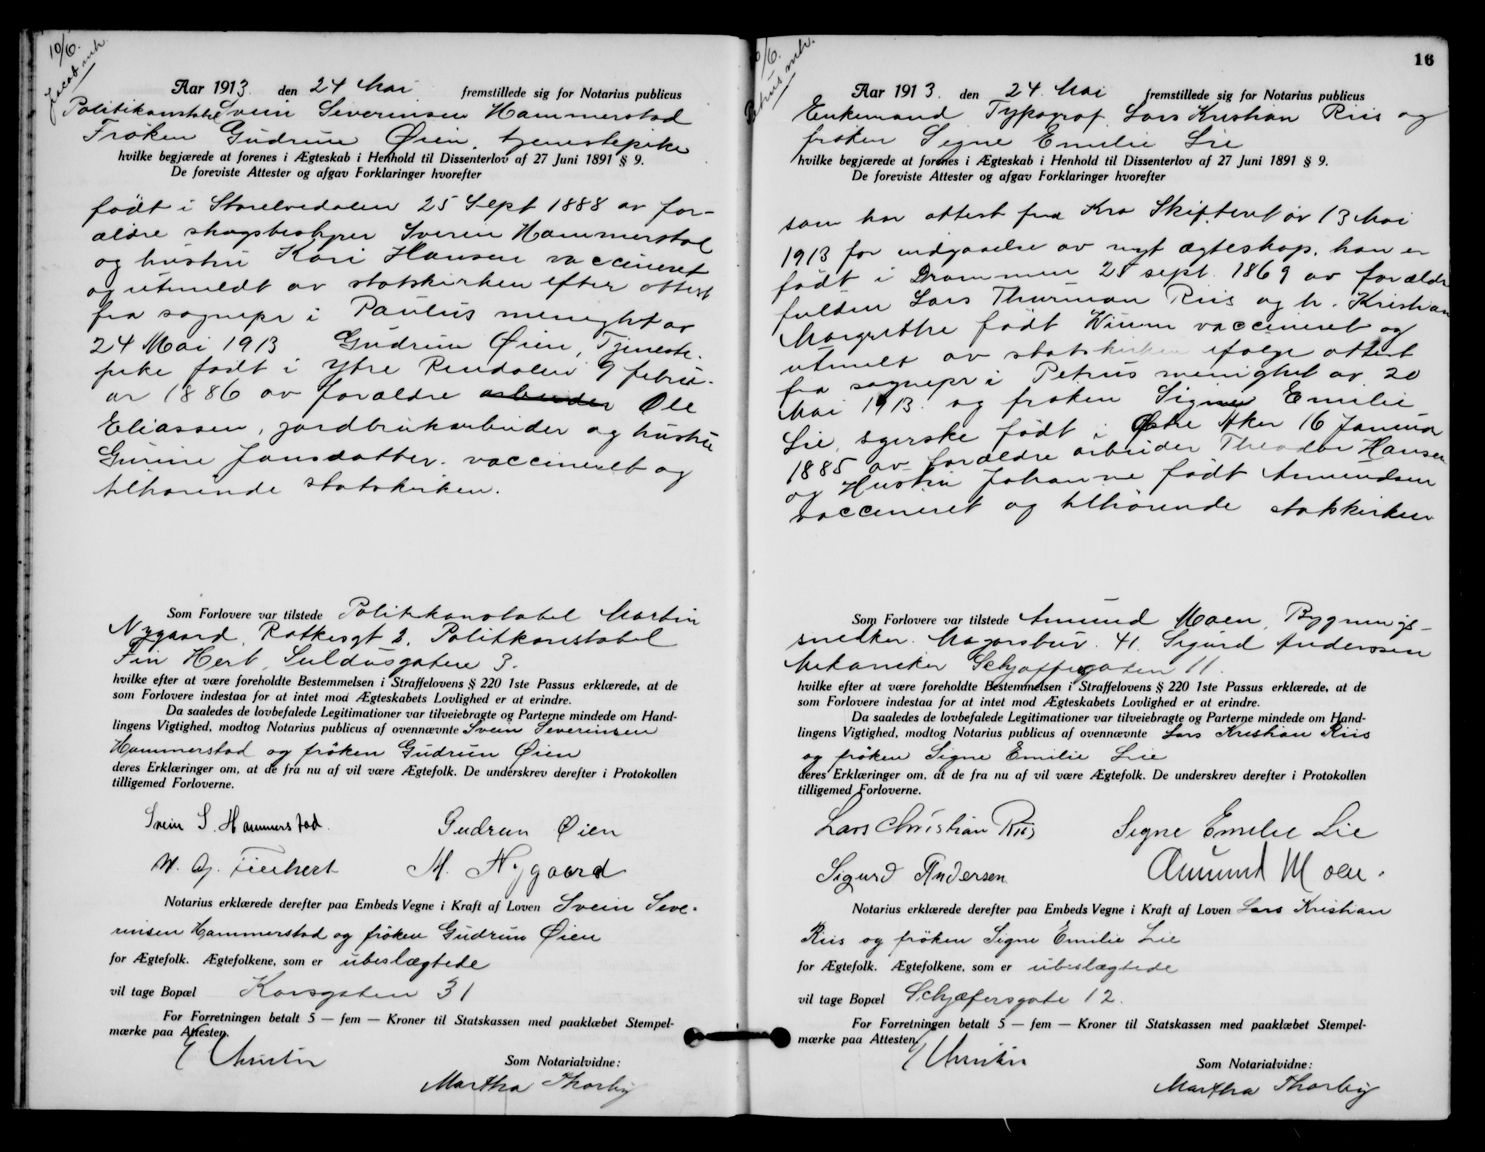 10/6.
Jacob mh.
Aar 1913. den 24 Mai fremstillede sig for Notarius publicus
Politikonstabel Svein Severinsen Hammerstad
Frøken Gudrun Øien, tjenestepike
hvilke begjærede at forenes i Ægteskab i Henhold til Dissenterlov af 27 Juni 1891 § 9.
De foreviste Attester og afgav Forklaringer hvorefter
født i Storelvedalen 25 Sept 1888 av for-
ældre skogsbestyrer Sverin Hammerstad
og hustru Kari Hansen vaccineret
og utmeldt av statskirken efter attest
fra sognepr i Paulus menighet av
24 Mai 1913 Gudrun Øien, Tjeneste-
pike født i Ytre Rendalen 9 febru-
ar 1886 av forældre arbeider Ole
Eliassen, jordbruksarbeider og hustru
Gurine Jonsdatter. vaccineret og
tilhørende statskirken.
Som Forlovere var tilstede Politikonstabel Martin
Nygaard, Ratkesgt 2. Politkonstabel
Fin Hert, Suldasgaten 3.
hvilke efter at være foreholdte Bestemmelsen i Straffelovens § 220 1ste Passus erklærede, at de
som Forlovere indestaa for at intet mod Ægteskabets Lovlighed er at erindre.
Da saaledes de lovbefalede Legitimationer var tilveiebragte og Parterne mindede om Hand-
lingens Vigtighed, modtog Notarius publicus af ovennævnte Svein Severinsen
Hammerstad og frøken Gudrun Øien
deres Erklæringer om, at de fra nu af vil være Ægtefolk. De underskrev derefter i Protokollen
tilligemed Forloverne.
Svein S. Hammerstad. Gudrun Øien
M. Nygaard
Notarius erklærede derefter paa Embeds Vegne i Kraft af Loven Svein Seve-
rinsen Hammerstad og frøken Gudrun Øien
for Ægtefolk. Ægtefolkene, som er ubeslægtede
vil tage Bopæl Korsgaten 31
For Forretningen betalt 5 — fem — Kroner til Statskassen med paaklæbet Stempel-
mærke paa Attesten.
Som Notarialvidne:
Martha Thorby
16
/6.
Petrus mh.
Aar 1913. den 24. Mai fremstillede sig for Notarius publicus
Enkemand, Typograf Lars Kristian Riis og
frøken Signe Emilie Lie
hvilke begjærede at forenes i Ægteskab i Henhold til Dissenterlov af 27 Juni 1891 § 9.
De foreviste Attester og afgav Forklaringer hvorefter
som har attest fra Kra Skifteret av 13 Mai
1913 for indgaaelse av nyt ægteskap. han er
født i Drammen 28 sept. 1869 av forældre
fulden Lars Thurman Riis og h. Kristian
Margrethe født Winum vaccineret og
utmelt av statskirken ifølge attest
fra sognepr i Petrus menighet av 20
Mai 1913. og frøken Signe Emilie
Lie, syerske født i Østre Aker 16 Januar
1885 av forældre arbeider Theodor Hansen
og Hustru Johanne født Amundsen
vaccineret og tilhørende statskirken
Som Forlovere var tilstede Amund Moen, Bygnings-
snedker. Magnsbur. 41. Sigurd Anderssen
Mekaniker Schjæffergaten 11.
hvilke efter at være foreholdte Bestemmelsen i Straffelovens § 220 1ste Passus erklærede, at de
som Forlovere indestaa for at intet mod Ægteskabets Lovlighed er at erindre.
Da saaledes de lovbefalede Legitimationer var tilveiebragte og Parterne mindede om Hand-
lingens Vigtighed, modtog Notarius publicus af ovennævnte Lars Kristian Riis
og frøken Signe Emilie Lie
deres Erklæringer om, at de fra nu af vil være Ægtefolk. De underskrev derefter i Protokollen
tilligemed Forloverne.
Lars Christian Riis Signe Emilie Lie
Sigurd Andersen Amund Moen.
Notarius erklærede derefter paa Embeds Vegne i Kraft af Loven Lars Kristian
Riis og frøken Signe Emilie Lie
for Ægtefolk. Ægtefolkene, som er ubeslægtede
vil tage Bopæl Schjæfersgate 12.
For Forretningen betalt 5 — fem — Kroner til Statskassen med paaklæbet Stempel-
mærke paa Attesten.
Som Notarialvidne:
Martha Thorby